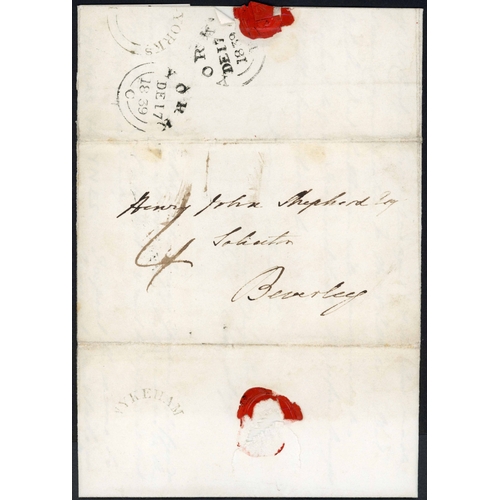 YORK
DE 17
1839
YORK
DE 17
1839
C
Henry John Shepherd Esq
Solicitor
Beverley
4
YKEHAM